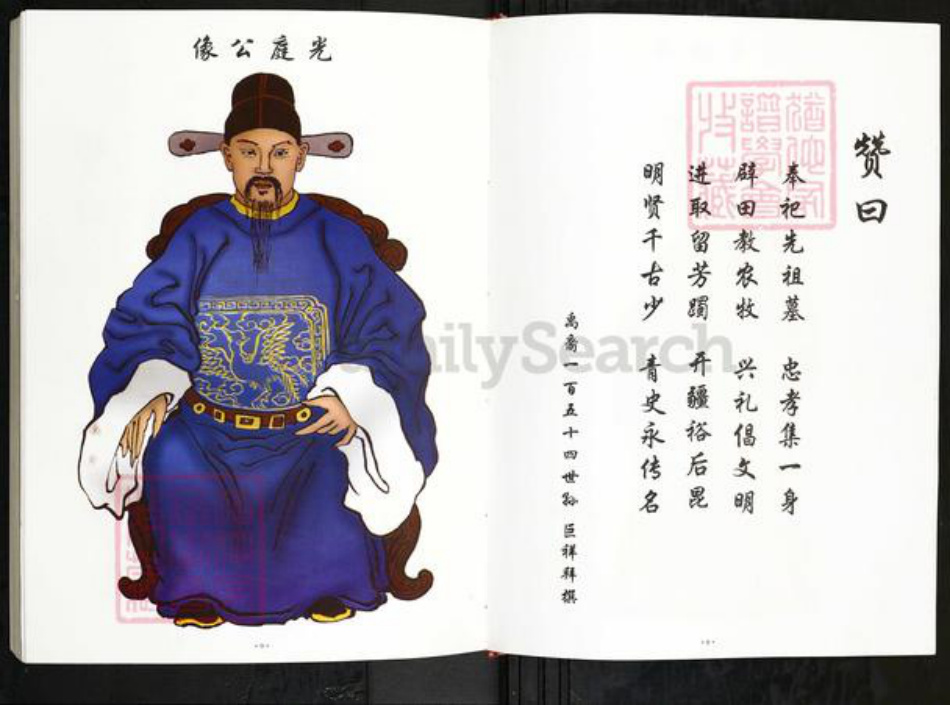 光庭公像
赞曰
奉祀先祖墓 忠孝集一身
辟田教农牧 兴礼倡文明
进取留芳躅 开疆裕后昆
明贤千古少 青史永传名
禹裔一百五十四世孙 臣祥拜撰
FamilySearch